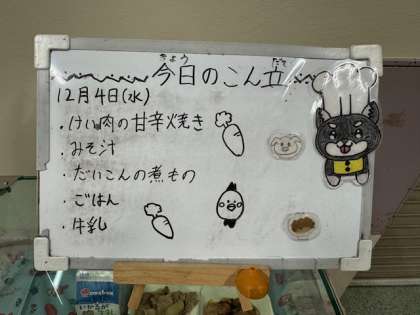 今日のこん立
きょう だて
12月4日(水)
・けい肉の甘辛焼き
・みそ汁
・だいこんの煮もの
・ごはん
・牛乳